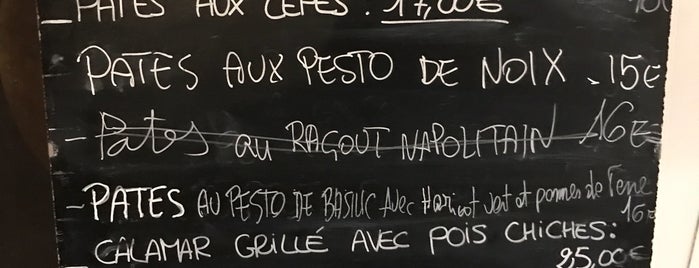 PATES AUX CEPES : 17,00€
PATES AUX PESTO DE NOIX - 15€
- Pates au RAGOUT NAPOLITAIN 16€
- PATES AU PESTO DE BASILIC Avec Haricot vert et pommes de Terre
16€
CALAMAR GRILLÉ AVEC POIS CHICHES:
25,00€